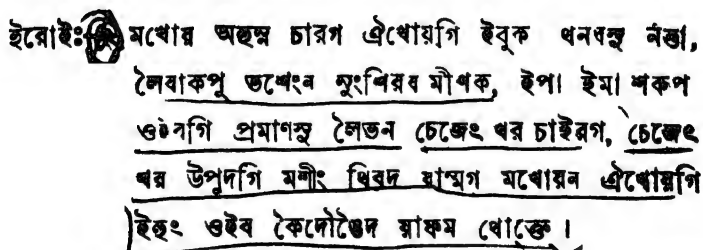 ইরোইঃ মখোয় অহুম্ন চারগ ঐখোয়গি ইবুক থনবসু নত্তা,
লৈবাকপু তশেংন নুংশিরব মীওক, ইপা ইমা শকপ
গি প্রমাণসু লৈতন চেজেং থর চাইরগ, চেজেং
থর উপুদগি মশীং থিবদ য়াম্মগ মখোয়ন ঐখোয়গি
ইহুং ওইব কৈদৌঙৈদ য়াকম থোক্তে ।